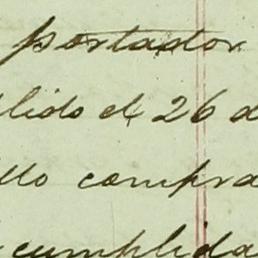 portador
lido el 26 d
llo compra
cumplida